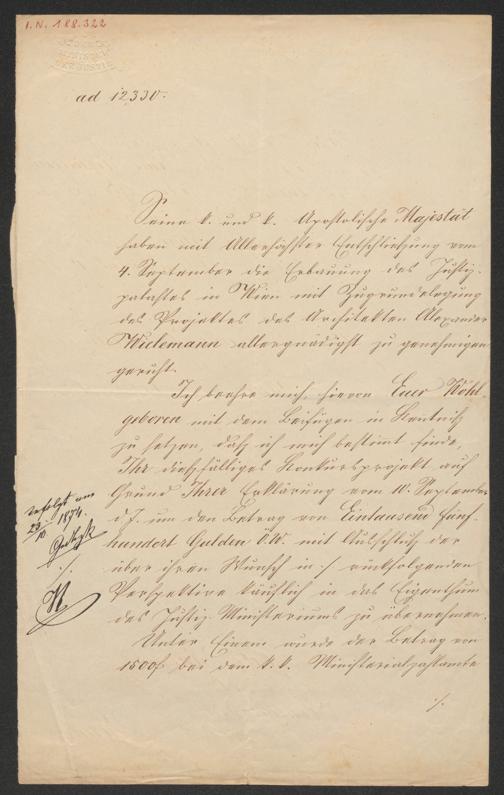 I. N. 188.322
ad 12330.
Seine k. und k. Apostolische Majestät
haben mit Allerhöchster Entschließung vom
4. September die Erbauung des Justiz-
palastes in Wien mit Zugrundelegung
des Projektes des Architekten Alexander
Wielemann allergnädigst zu genehmigen
geruht.
Ich beehre mich, hievon Euer Wohl-
geboren mit dem Beifügen in Kentniß
zu setzen, daß ich mich bestimt finde,
Ihr dießfälliges Konkursprojekt auf
Grund Ihrer Erklärung vom 10. September
d. J. um den Betrag von Eintausend fünf-
hundert Gulden ö. W. mit Ausschluß der
über ihren Wunsch in ·/. rückfolgenden
Perspektive käuflich in das Eigenthum
des Justiz-Ministeriums zu übernehmen.
Unter Einem wurde der Betrag von
1500 f bei dem k. k. Ministerialzahlamte
·/.
erfolgt am
23/10 1874.
·/.